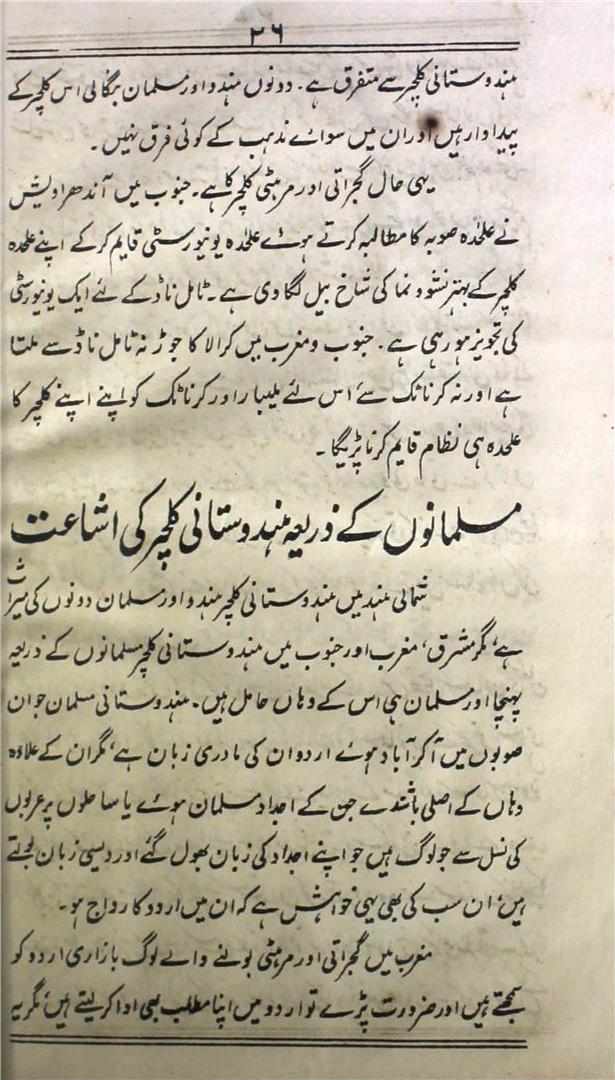 ۲۶
ہندوستانی کلچر سے متفرق ہے۔ دونوں ہندو اور مسلمان بنگالی اس کلچر کے
پیداوار ہیں اور ان میں سوائے مذہب کے کوئی فرق نہیں۔
یہی حال گجراتی اور مرہٹی کلچر کا ہے۔ جنوب میں آندھرا دیش
نے علٰحدہ صوبہ کا مطالبہ کرتے ہوئے علٰحدہ یونیورسٹی قایم کرکے اپنے علحدہ
کلچر کے بہتر نشوونما کی شاخ بیل لگا دی ہے۔ ٹامل ناڈ کے لئے ایک یونیورسٹی
کی تجویز ہو رہی ہے۔ جنوب و مغرب میں کرالا کا جوڑ نہ ٹامل ناڈ سے ملتا
ہے اور نہ کرناٹک سے، اس لئے ملیبار اور کرناٹک کو اپنے اپنے کلچر کا
علحدہ ہی نظام قایم کرنا پڑیگا۔
مسلمانوں کے ذریعہ ہندوستانی کلچر کی اشاعت
شمالی ہند میں ہندوستانی کلچر ہندو اور مسلمان دونوں کی میراث
ہے، مگر مشرق، مغرب اور جنوب میں ہندوستانی کلچر مسلمانوں کے ذریعہ
پہنچا اور مسلمان ہی اس کے وہاں حامل ہیں۔ ہندوستانی مسلمان جو ان
صوبوں میں آکر آباد ہوئے اردو ان کی مادری زبان ہے، مگر ان کے علاوہ
وہاں کے اصلی باشندے جن کے اجداد مسلمان ہوئے یا ساحلوں پر عربوں
کی نسل سے جو لوگ ہیں جو اپنے اجداد کی زبان بھول گئے اور دیسی زبان بولتے
ہیں، ان سب کی بھی یہی خواہش ہے کہ ان میں اردو کا رواج ہو۔
مغرب میں گجراتی اور مرہٹی بولنے والے لوگ بازاری اردو کو
سمجھتے ہیں اور ضرورت پڑے تو اردو میں اپنا مطلب بھی ادا کر لیتے ہیں، مگر یہ